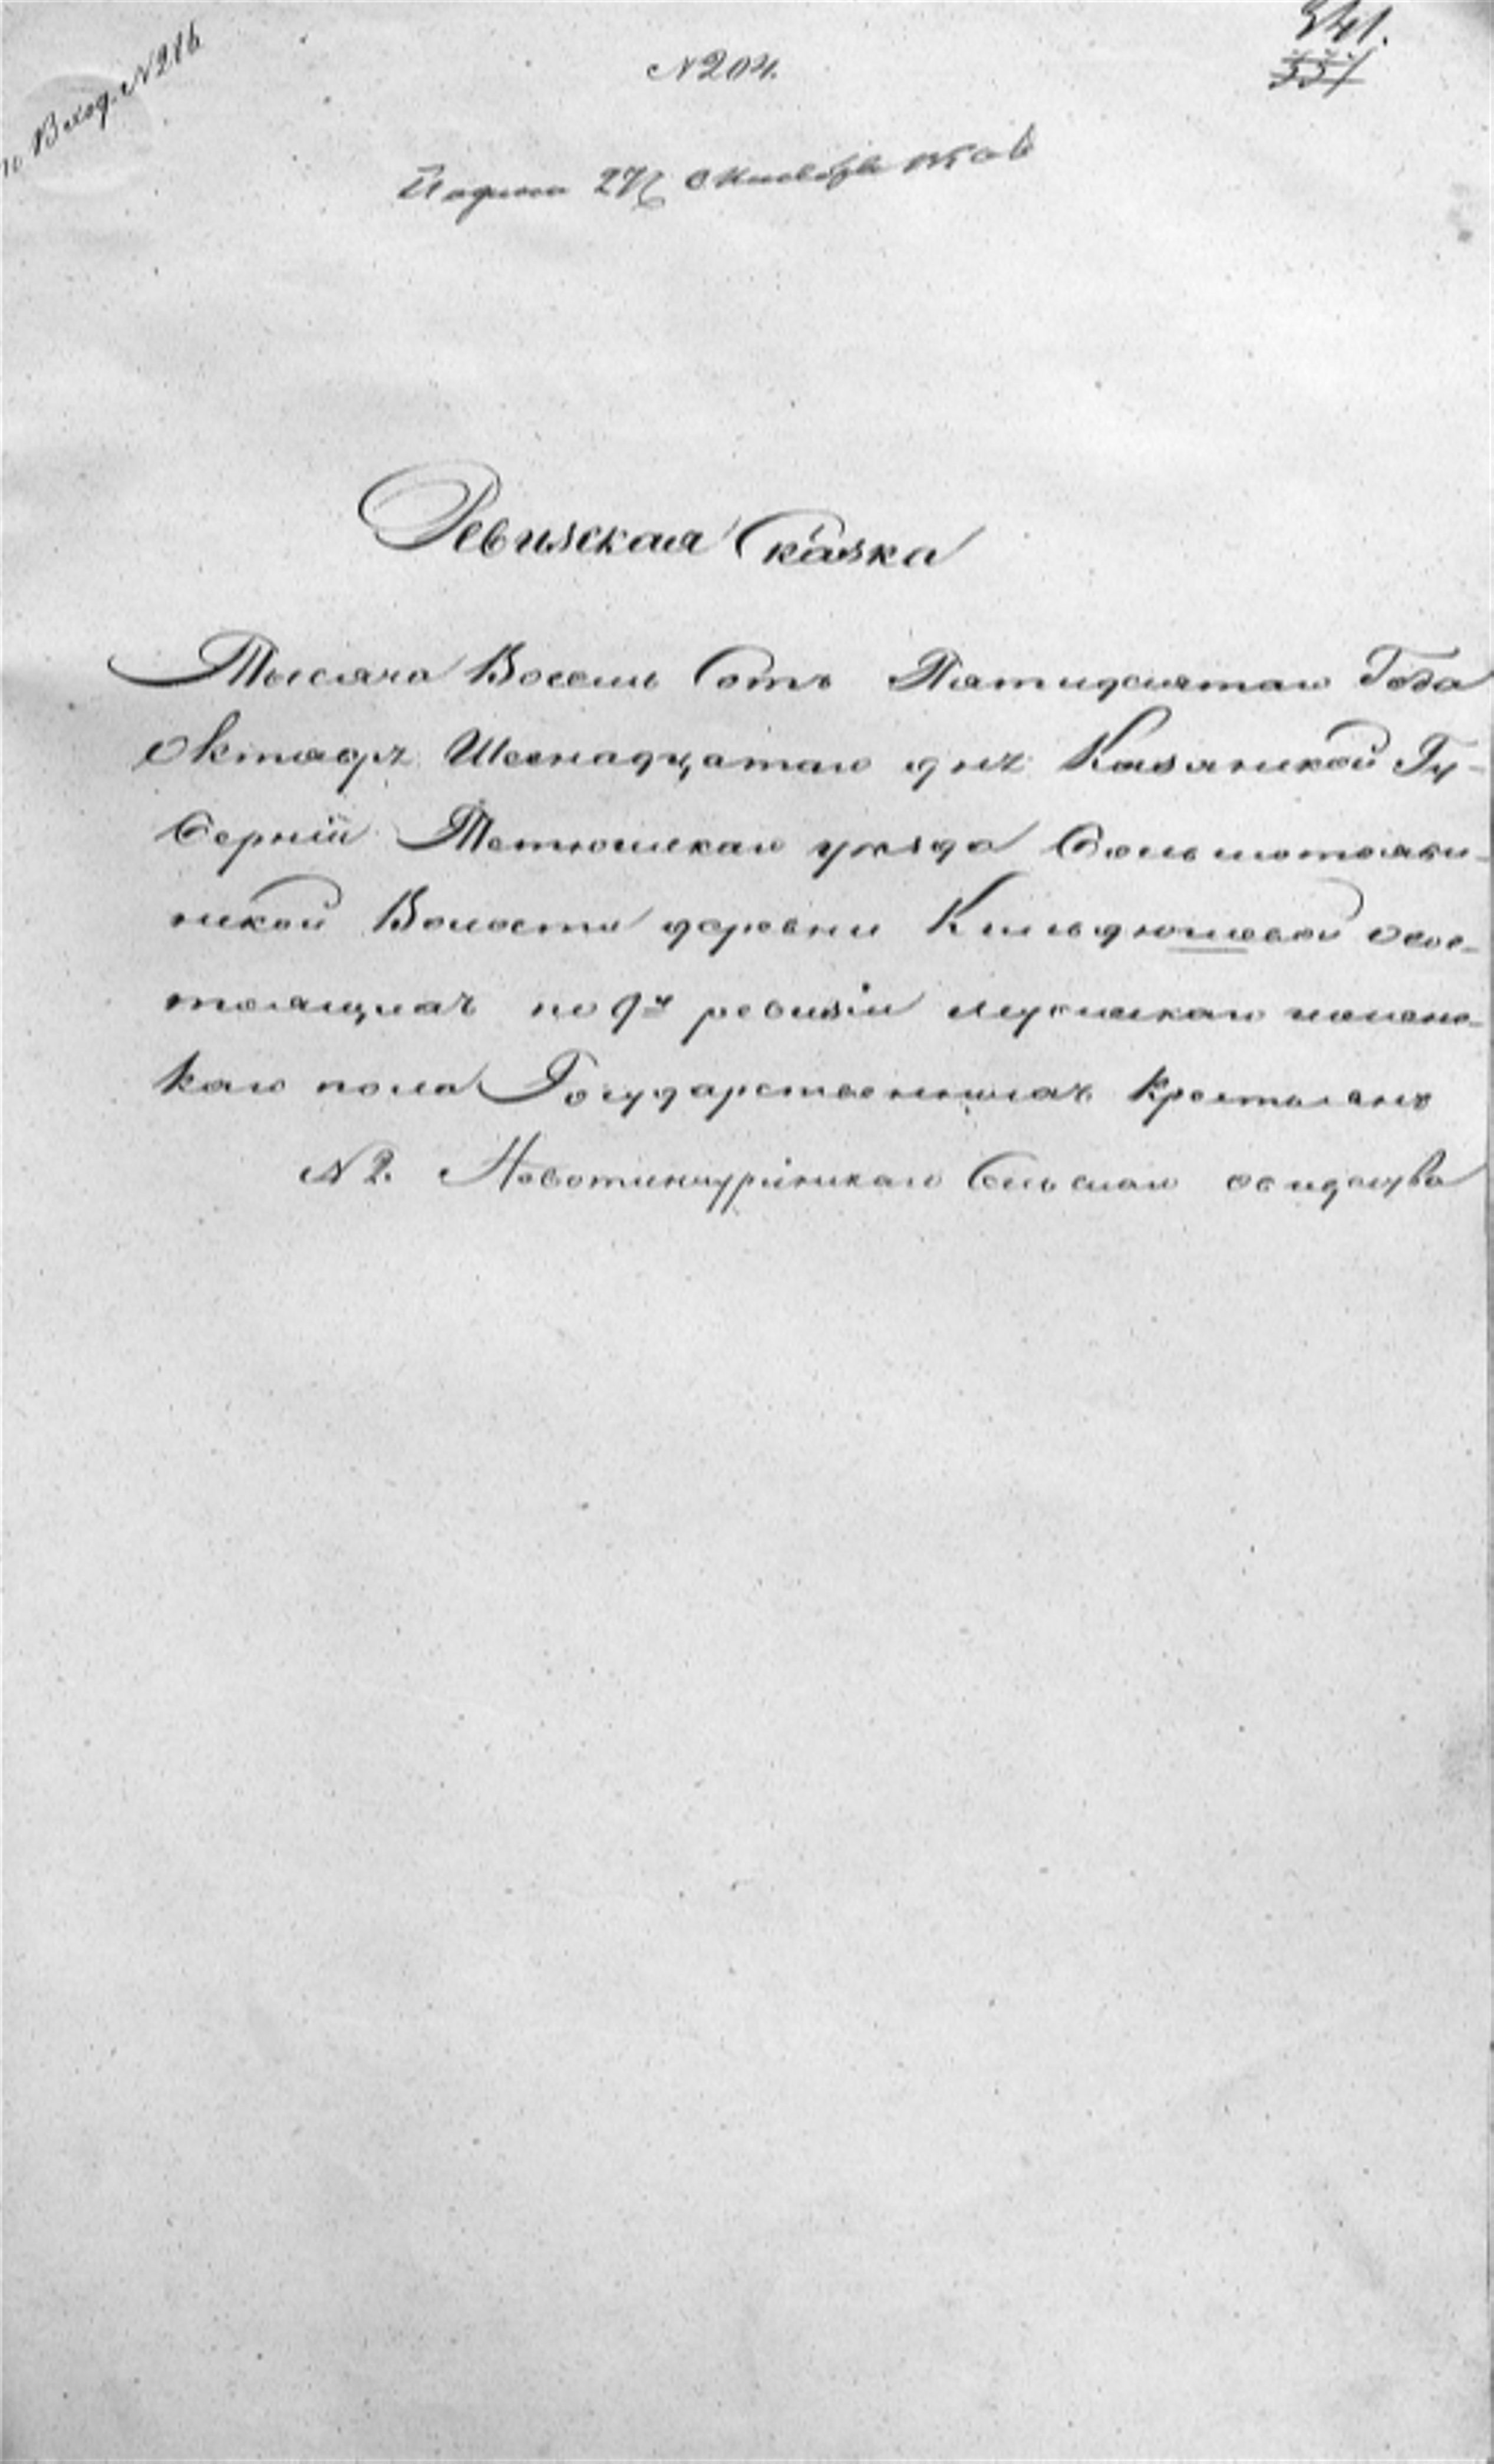 по Вход. N 216
N 204.
341.
551
Подана 27 Октября 1850
Ревизская Сказка
Тысяча Восемь Сотъ Пятидесятаго Года
Октября Шеснадцатаго дня Казанской Гу-
берніи Тетюшскаго уѣзда Большотояби-
нской Волости деревни Кильдюшевой о состо-
тоящихъ по 9й ревизіи мужескаго и женс-
каго пола Государственныхъ крестьянъ
N 2. Новотинчуринскаго Сельскаго